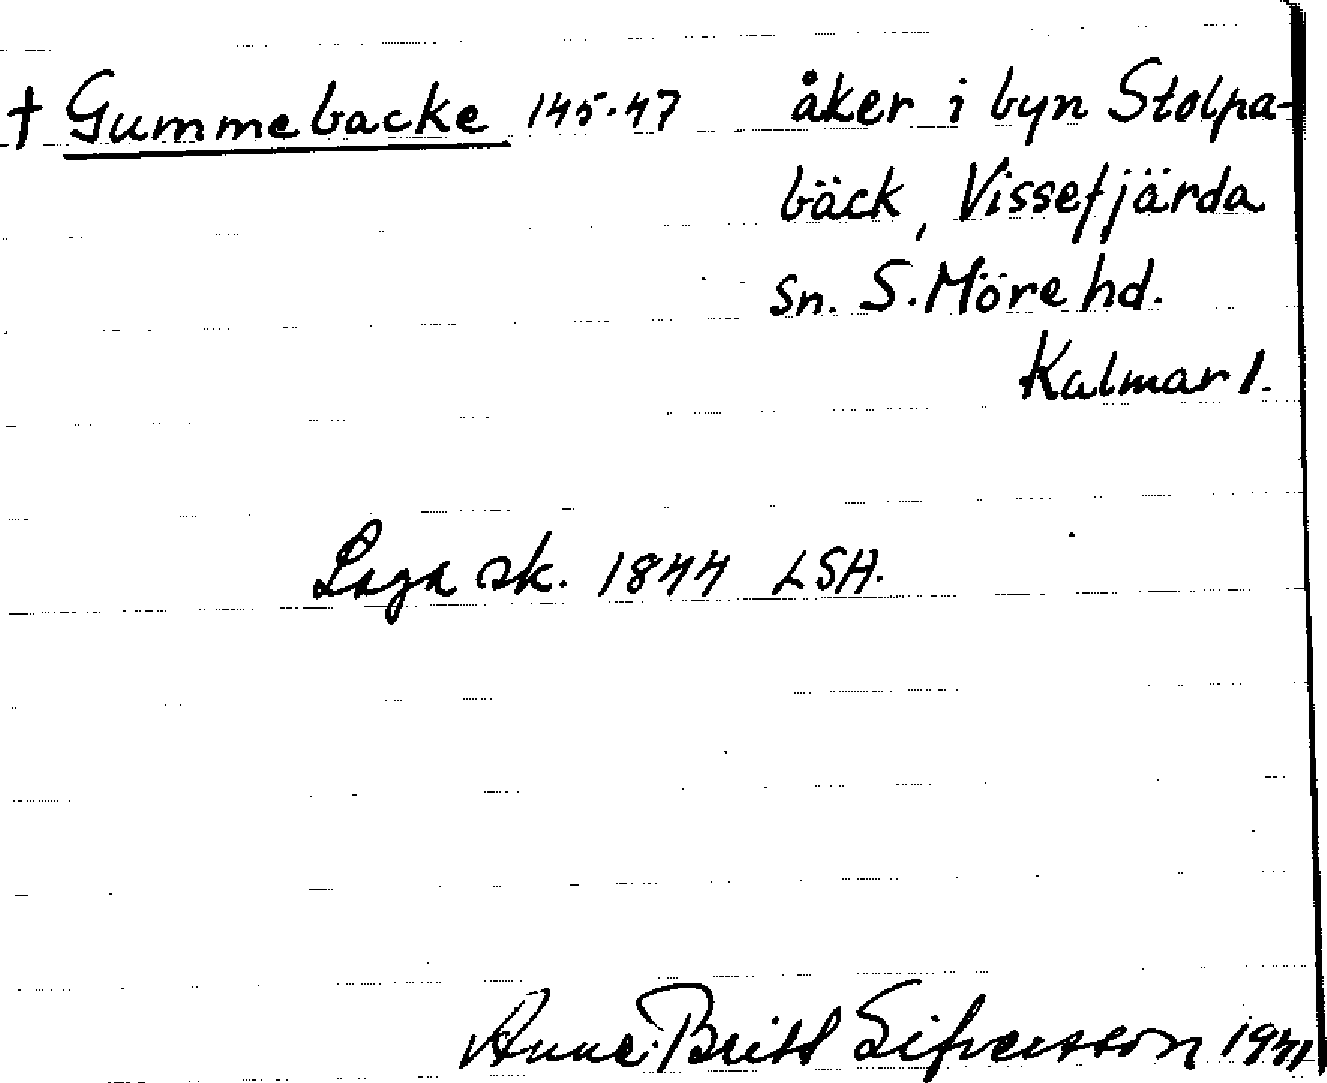 † Gummebacke 145-47 åker i byn Stolpa-
bäck, Vissefjärda
sn. S. Möre hd.
Kalmar l.
Laga sk. 1844 LSA.
Anne-Britt Sifversson